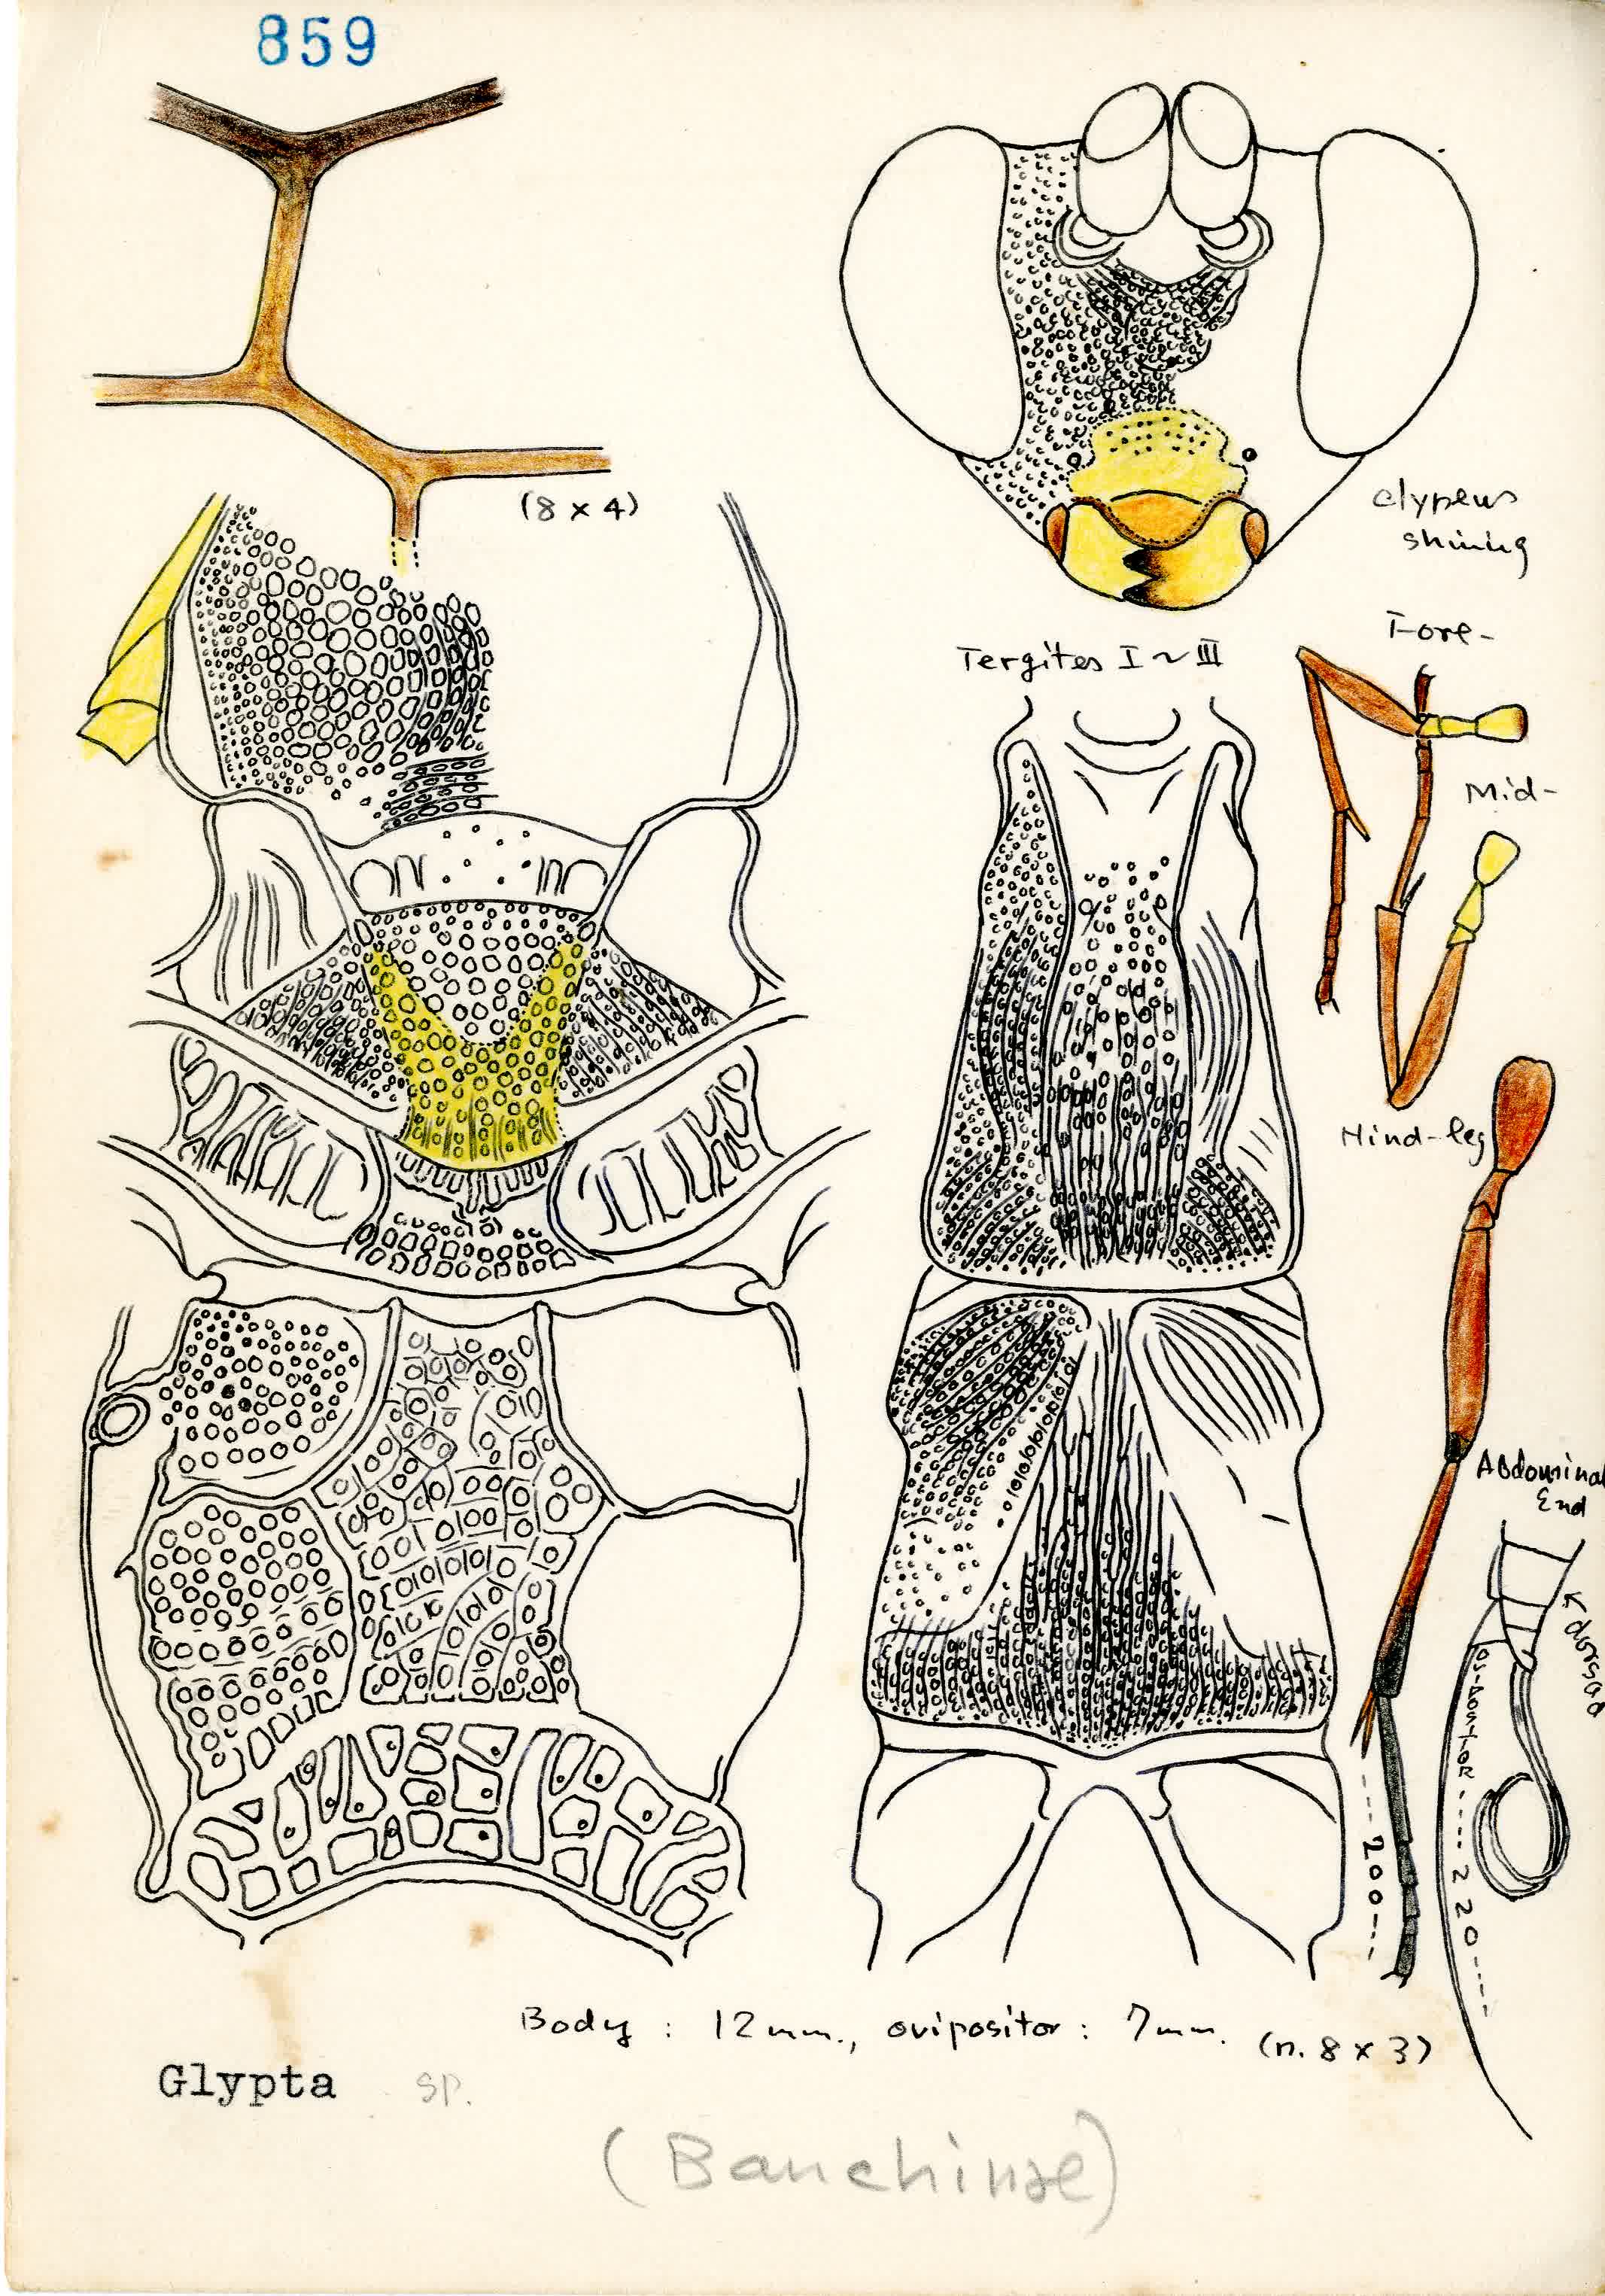 859
(8 x 4)
clypeus
shining
Tergites I ~ III
Fore-
Mid-
Hind-leg
Abdominal
End
dorsad
OVIPOSITOR ---- 220 ----
---- 200 ---
Body : 12 mm., ovipositor : 7 mm. (n. 8 x 3)
Glypta sp.
(Banchinae)